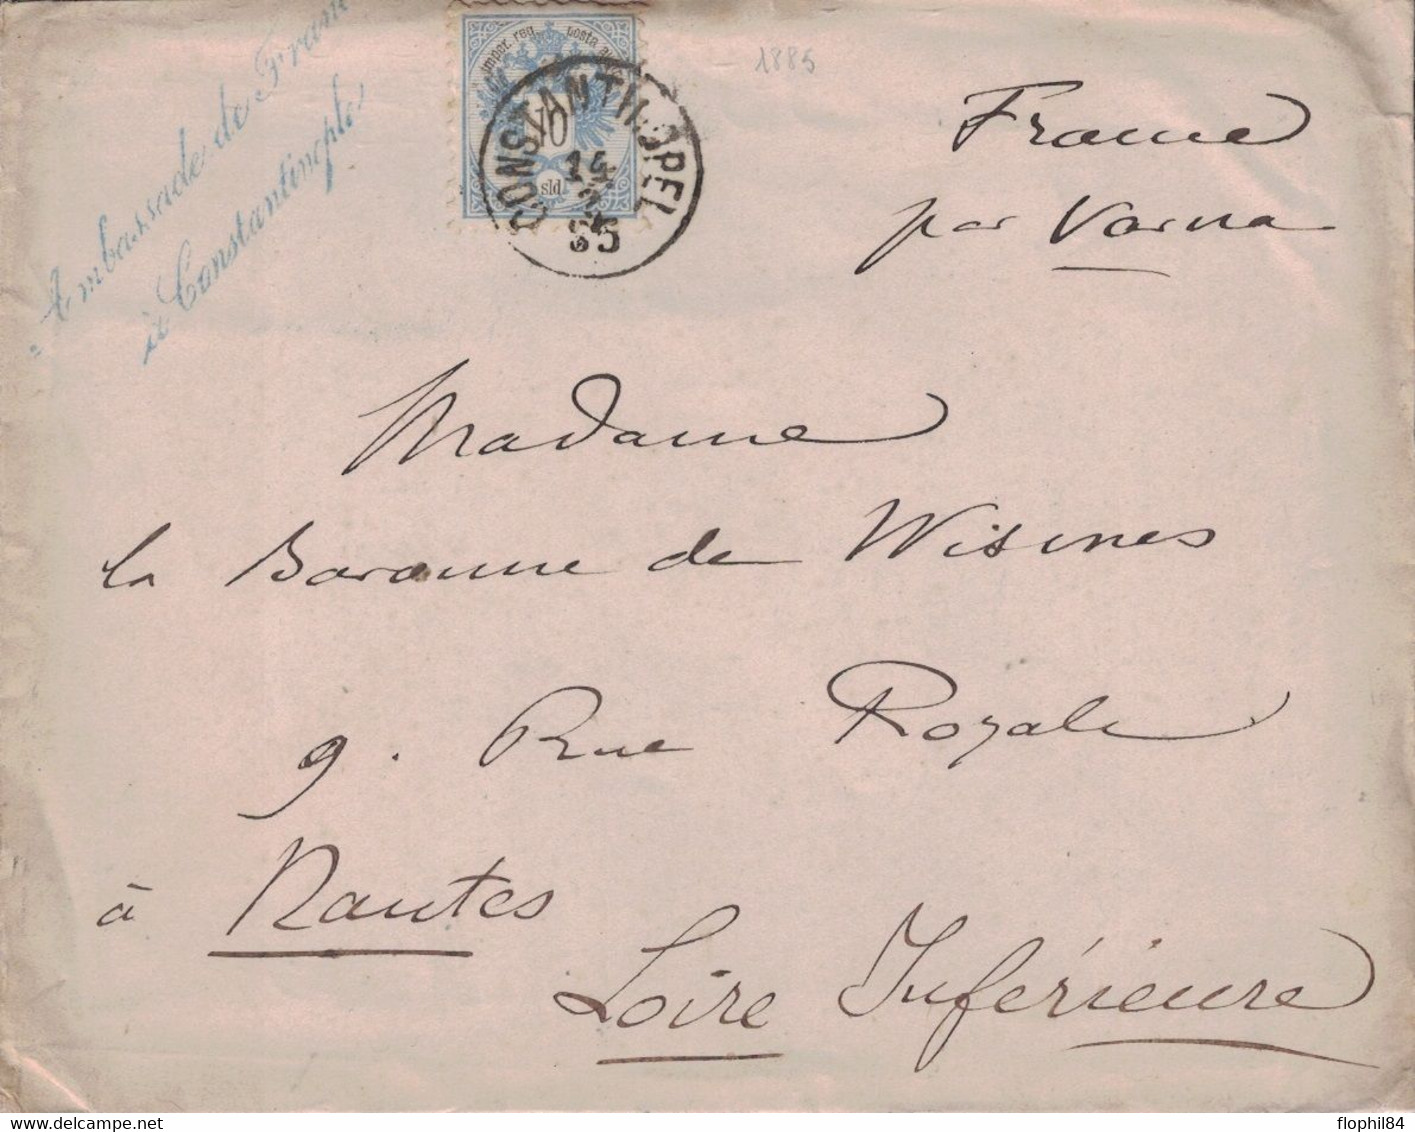 Ambassade de France
à Constantinople
imper. reg. posta
10
sld
CONSTANTINOPEL
14
85
1885
France
par Varna
Madame
la Baronne de Wismes
9. Rue Royale
à Nantes
Loire Inférieure
delcampe.net
flophil84